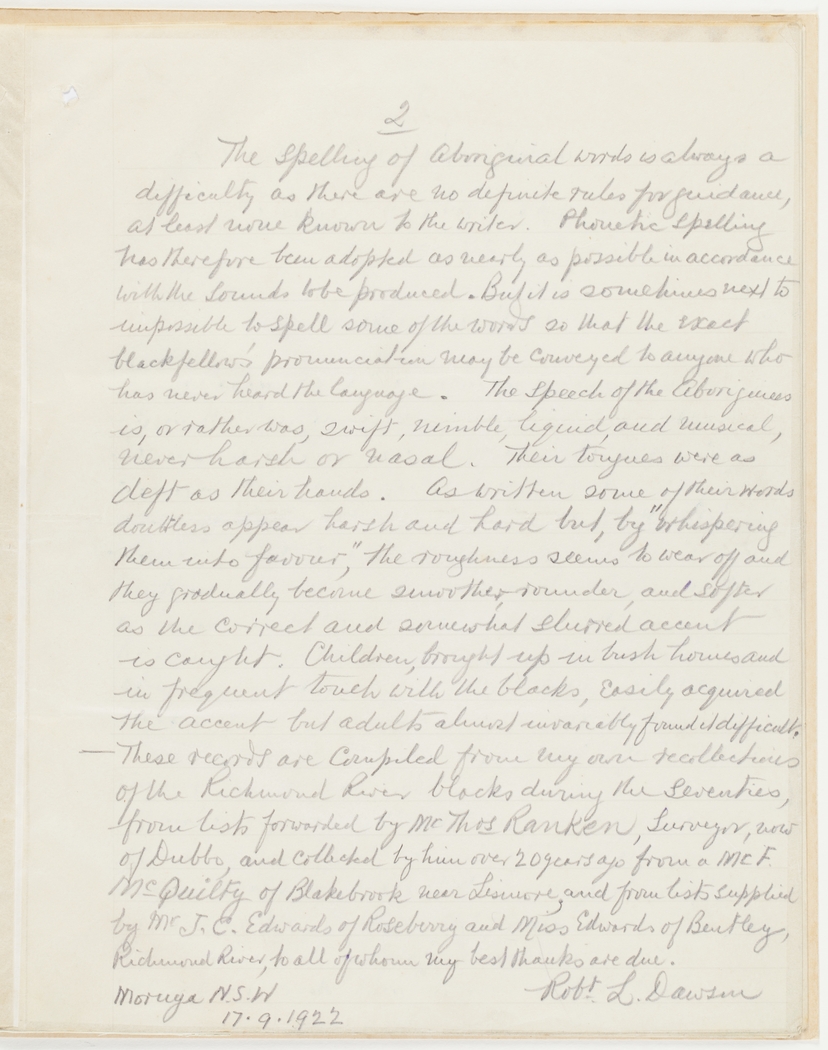 2
The spelling of Aboriginal words is always a
difficulty as there are no definite rules for guidance,
at least none known to the writer. Phonetic spelling
has therefore been adopted as nearly as possible in accordance
with the sounds to be produced. But it is sometimes next to
impossible to spell some of the words so that the exact
blackfellow's pronunciation may be conveyed to anyone who
has never heard the language. The speech of the Aborigines
is, or rather was, swift, nimble, liquid, and musical,
never harsh or nasal. Their tongues were as
deft as their hands. As written some of their words
doubtless appear harsh and hard but, by "whispering
them into favour," the roughness seems to wear off and
they gradually become smoother, rounder, and softer
as the correct and somewhat slurred accent
is caught. Children, brought up in bush homes and
in frequent touch with the blacks, easily acquired
the accent but adults almost invariably found it difficult.
— These records are compiled from my own recollections
of the Richmond River blacks during the Seventies,
from lists forwarded by Mr Thos Ranken, Surveyor, now
of Dubbo, and collected by him over 20 years ago from a Mr F.
McQuilty of Blakebrook near Lismore, and from lists supplied
by Mr J. C. Edwards of Roseberry and Miss Edwards of Bentley,
Richmond River, to all of whom my best thanks are due.
Moruya N.S.W Robt. L. Dawson
17.9.1922